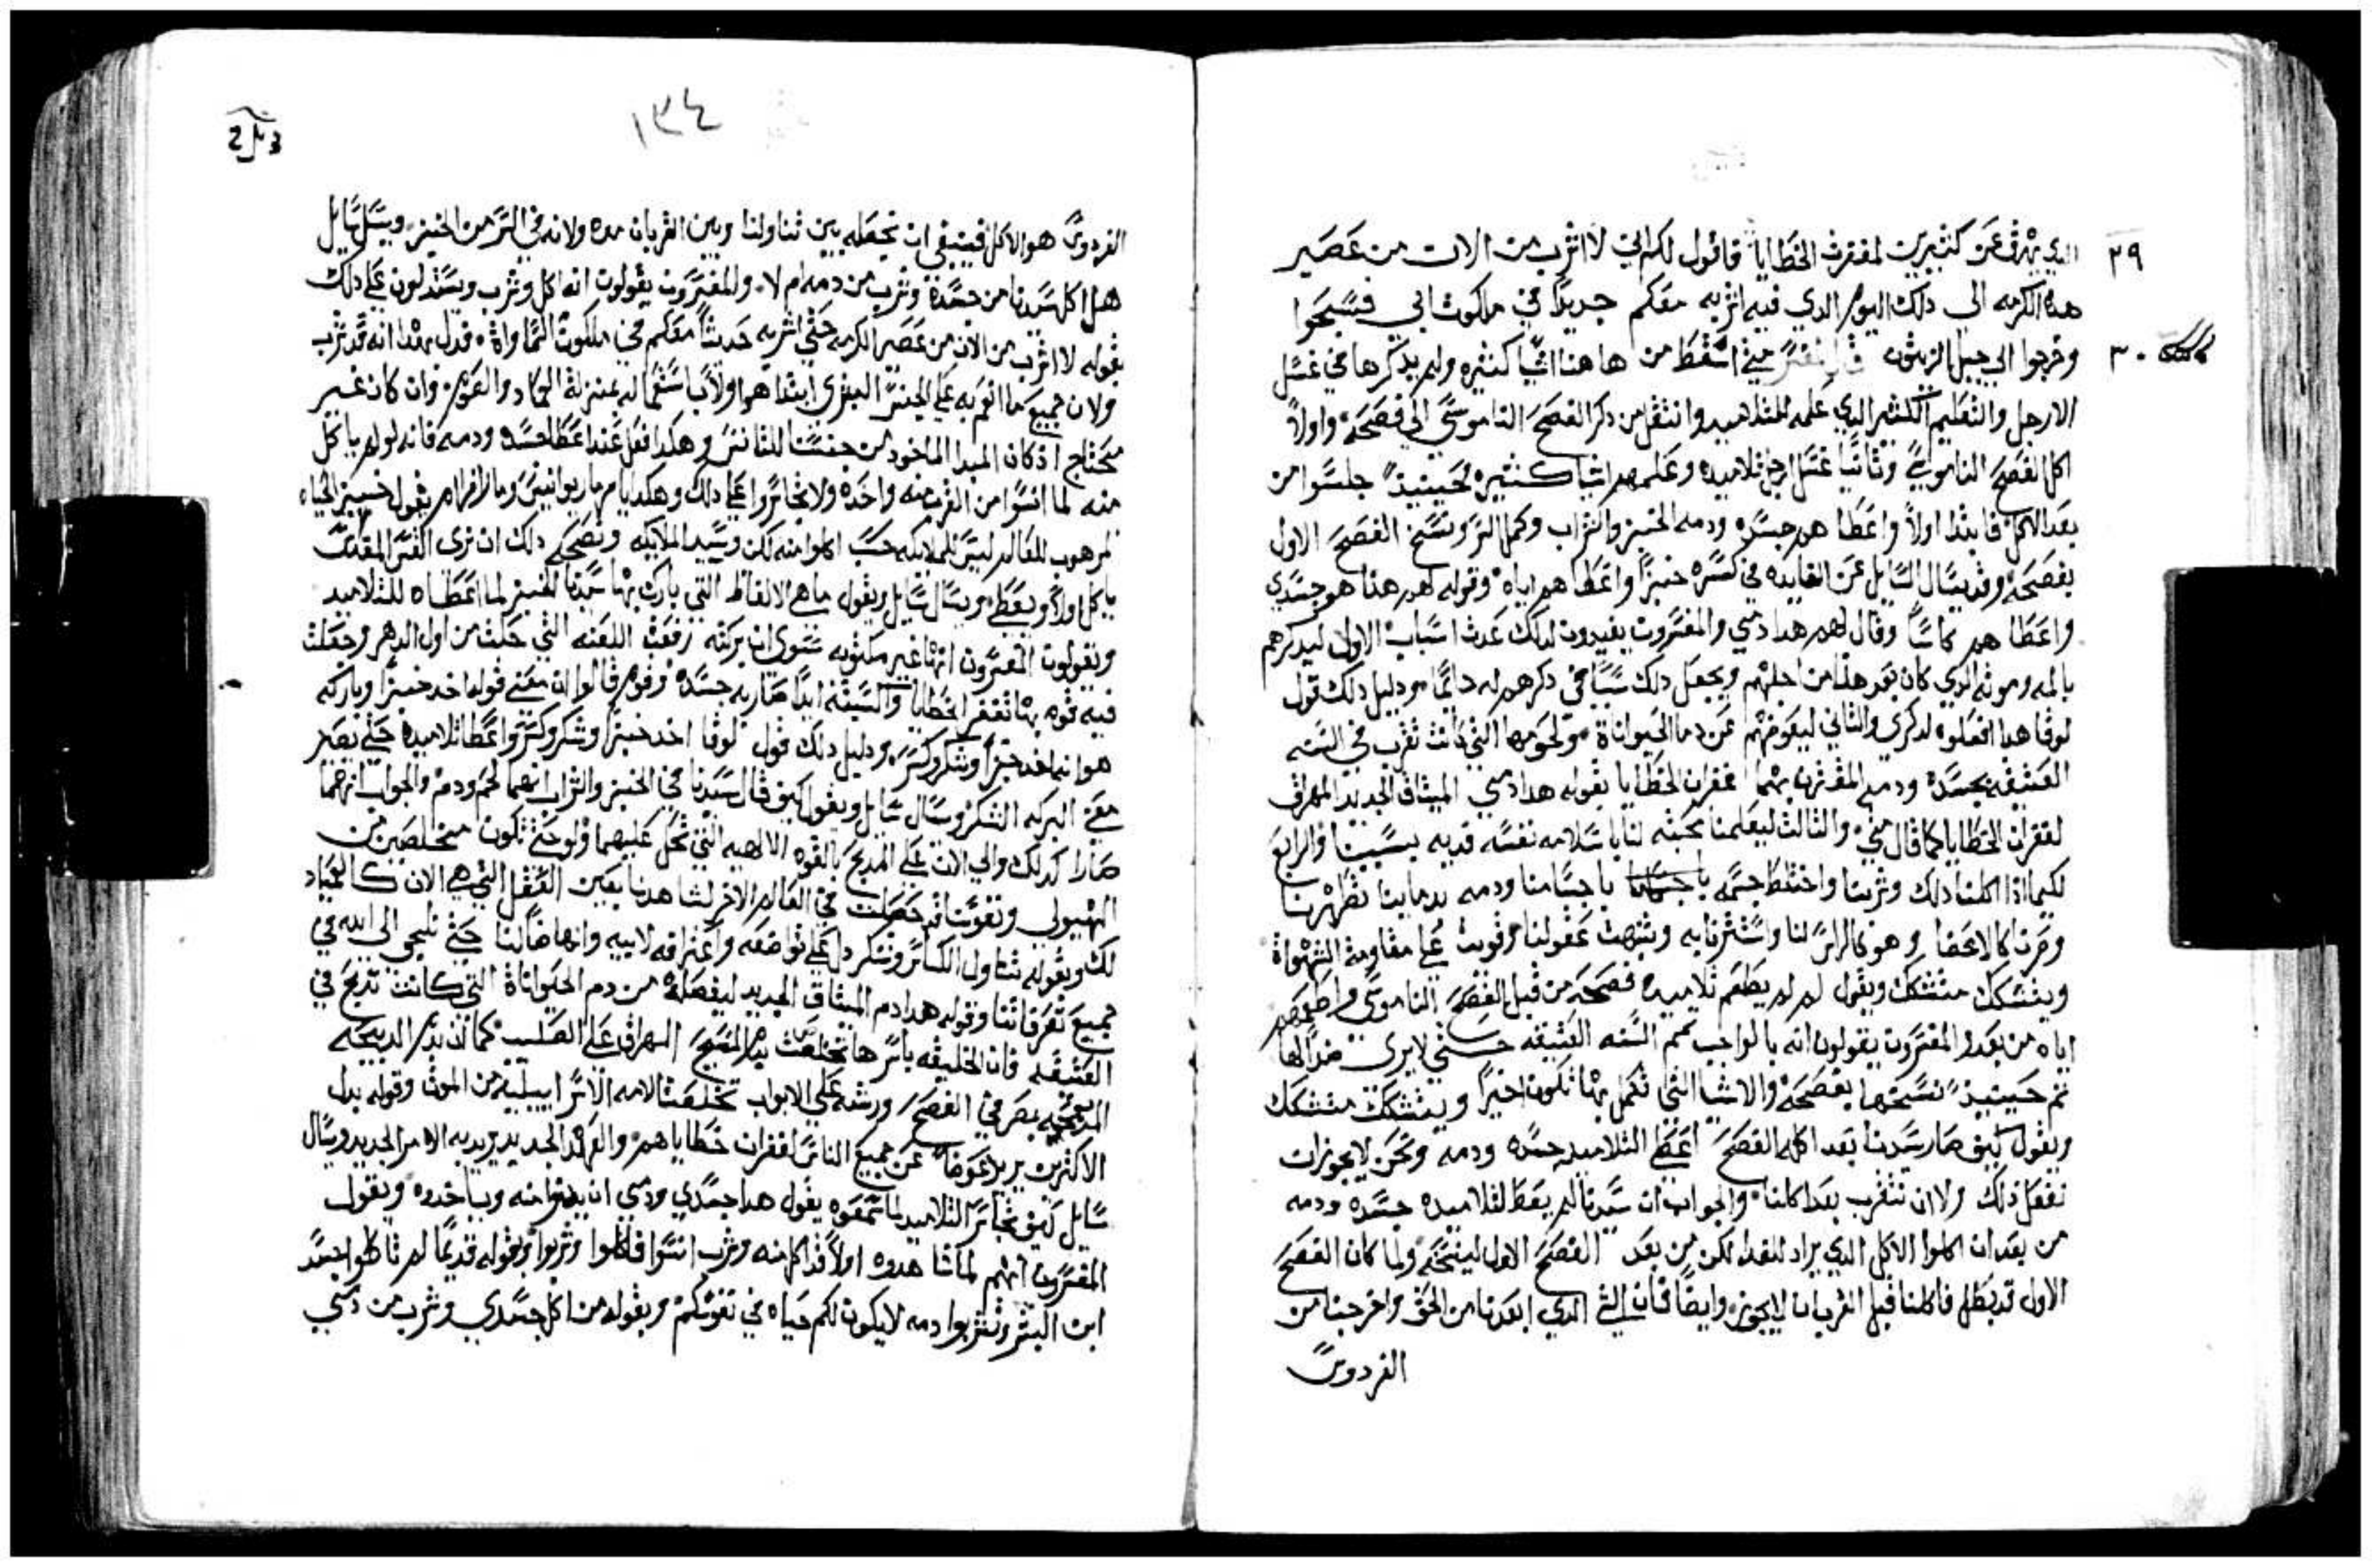 ٢٩
الذي يهرق عن كثيرين لمغفرة الخطايا فاقول لكم اني لا اشرب من الان من عصير
هذه الكرمه الي ذلك اليوم الذي فيه اشربه معكم جديدًا في ملكوت ابي فسبحوا
٣٠
وخرجوا الي جبل الزيتون متي اسقط من هاهنا اشيا كثيره ولم يذكرها في غسل
الارجل والتعليم الكثير الذي علمه للتلاميد وانتقل من ذكر الفصح الناموسي الي فصحه واولاً
اكل الفصح الناموسي وثانيًا غسل ارجل تلاميده وعلمهم اشيا كثيره فحينيذٍ جلسوا من
بعد الاكل فابتدا اولاً واعطاهم جسده ودمه الخبز والشراب وكمل السر ونسخ الفصح الاول
بفصحه وقد يسال السايل عن الفايده في كسره خبزًا واعطاهم اياه وقوله لهم هذا هو جسدي
واعطاهم كاسًا وقال لهم هذا دمي والمفسرون يفيدون لذلك عدة اسباب الاول ليدكرهم
بالمه وموته الذي كان بعد هذا من اجلهم ويجعل ذلك سببًا في ذكرهم له دايمًا ودليل ذلك قول
لوقا هذا افعلوه لذكري والثاني ليعوضهم عن دما الحيواناة ولحومها التي كانت تقرب في السنه
العتيقه بجسده ودمه المقترن بهما غفران الخطايا بقوله هذا دمي الميثاق الجديد المهرق
لغفران الخطايا كما قال متي والثالث ليعلمنا محبته لنا باسلامه نفسه فديه بسببنا والرابع
لكيما اذا اكلنا ذلك وشربنا واختلط جسمه باجسامنا ودمه بدماينا تطهرنا
وصرنا كالاعضا وهو كالراس لنا واستترنا به وتنبهت عقولنا وقويت علي مقاومة الشهواة
ويتشكك متشكك ويقول لم لم يطعم تلاميده فصحه من قبل الفصح الناموسي واطعمهم
اياه من بعده والمفسرون يقولون انه بالواجب تمم السنه العتيقه حتي لا يري ضدًا لها
ثم حينيذٍ نسخها بفصحه والاشيا التي تكمل بها تكون اخيرًا ويتشكك متشكك
ويقول كيف صار سيدنا بعد اكله الفصح اعطي التلاميد جسده ودمه ونحن لا يجوز ان
نفعل ذلك ولا ان نتقرب بعد اكلنا والجواب ان سيدنا لم يعط لتلاميده جسده ودمه
من بعد ان اكلوا الاكل الذي يراد للغدا لكن من بعد الفصح الاول لينسخه ولما كان الفصح
الاول قد بطل فاكلنا قبل القربان لا يجوز وايضًا فان الذي ابعدنا من الحق واخرجنا من
الفردوس
١٣٤
الفردوس هو الاكل فينبغي ان نجعله بين تناولنا وبين القربان مده ولانه في السر من الخبز ويسل سايل
هل اكل سيدنا من جسده وشرب من دمه ام لا والمفسرون يقولون انه اكل وشرب ويستدلون علي ذلك
بقوله لا اشرب من الان من عصير الكرمه حتي اشربه حديثًا معكم في ملكوت السماواة فدل بهذا انه قد شرب
ولان جميع ما انعم به علي الجنس البشري ابتدا هو اولاً باستعماله بمنزلة العماد والصوم وان كان غير
محتاج اذ كان المبدا الماخود من جنسنا للتانس وهكدا فعل عند اعطا جسده ودمه فانه لو لم ياكل
منه لما انسوا من القرب منه واخده ولا تجاسروا علي ذلك وهكدا يا مر مار يوانيس ومار افرام يقول خبز الحياه
المرهوب للعالم ليس للملايكه حسب اكلوا منه لكن وسيد الملايكه وتصحيح ذلك ان نري القس المقدس
ياكل اولاً ويعطي ويسال سايل ويقول ما هي الالفاظ التي بارك بها سيدنا الخبز لما اعطاه للتلاميد
ويقولون المفسرون انها غير مكتوبه سوي ان بركته رفعت اللعنه التي حلت من اول الدهر وجعلت
فيه قوه بها تغفر الخطايا والسيئه ابدًا صار به جسده وقوم قالوا ان معني قوله اخد خبزًا وباركه
هو انه اخد خبزًا وشكر وكسره ودليل ذلك قول لوقا اخد خبزًا وشكر وكسر واعطا تلاميده حتي يصير
معني البركه الشكر وسال سايل ويقول كيف قال سيدنا في الخبز والشراب انهما لحم ودم والجواب انهما
صارا كدلك والي الان علي المدبح بالقوه الالهيه التي تحل عليهما ولو حتي تكون متخلصين من
الهيولي ونفوسنا قد حصلت في العالم الاخر لشاهدنا بعين العقل التي هي الان كالعياد
لك وبقوله تناول الكاس وشكر دل علي تواضعه واعترافه لابيه وانهاضًا لنا حتي نلتجي الي الله في
جميع تصرفاتنا وقوله هدا دم الميثاق الجديد ليفصله من دم الحيواناة التي كانت تدبح في
العتيقه فان الخليقه باسرها تخلصت بدم المسيح المهراق علي الصليب كما ان بدم الدبيحه
المدبوحه بمصر في الفصح ورشه علي الابواب تخلصت الامه الاسراييليه من الموت وقوله بدل
الاكثرين يريد عوضًا عن جميع الناس لغفران خطاياهم والعهد الجديد يريد به الامر الجديد ويسال
سايل كيف تجاسر التلاميد لما سمعوه يقول هدا جسدي ودمي ان يدنوا منه وياخدوه ويقول
المفسرون انهم لما شاهدوه اولاً قد اكل منه وشرب انسوا فاكلوا وشربوا وبقوله قديمًا لهم ان لم تاكلوا جسد
ابن البشر وتشربوا دمه لا يكون لكم حياه في نفوسكم وبقوله من اكل جسدي وشرب من دمي